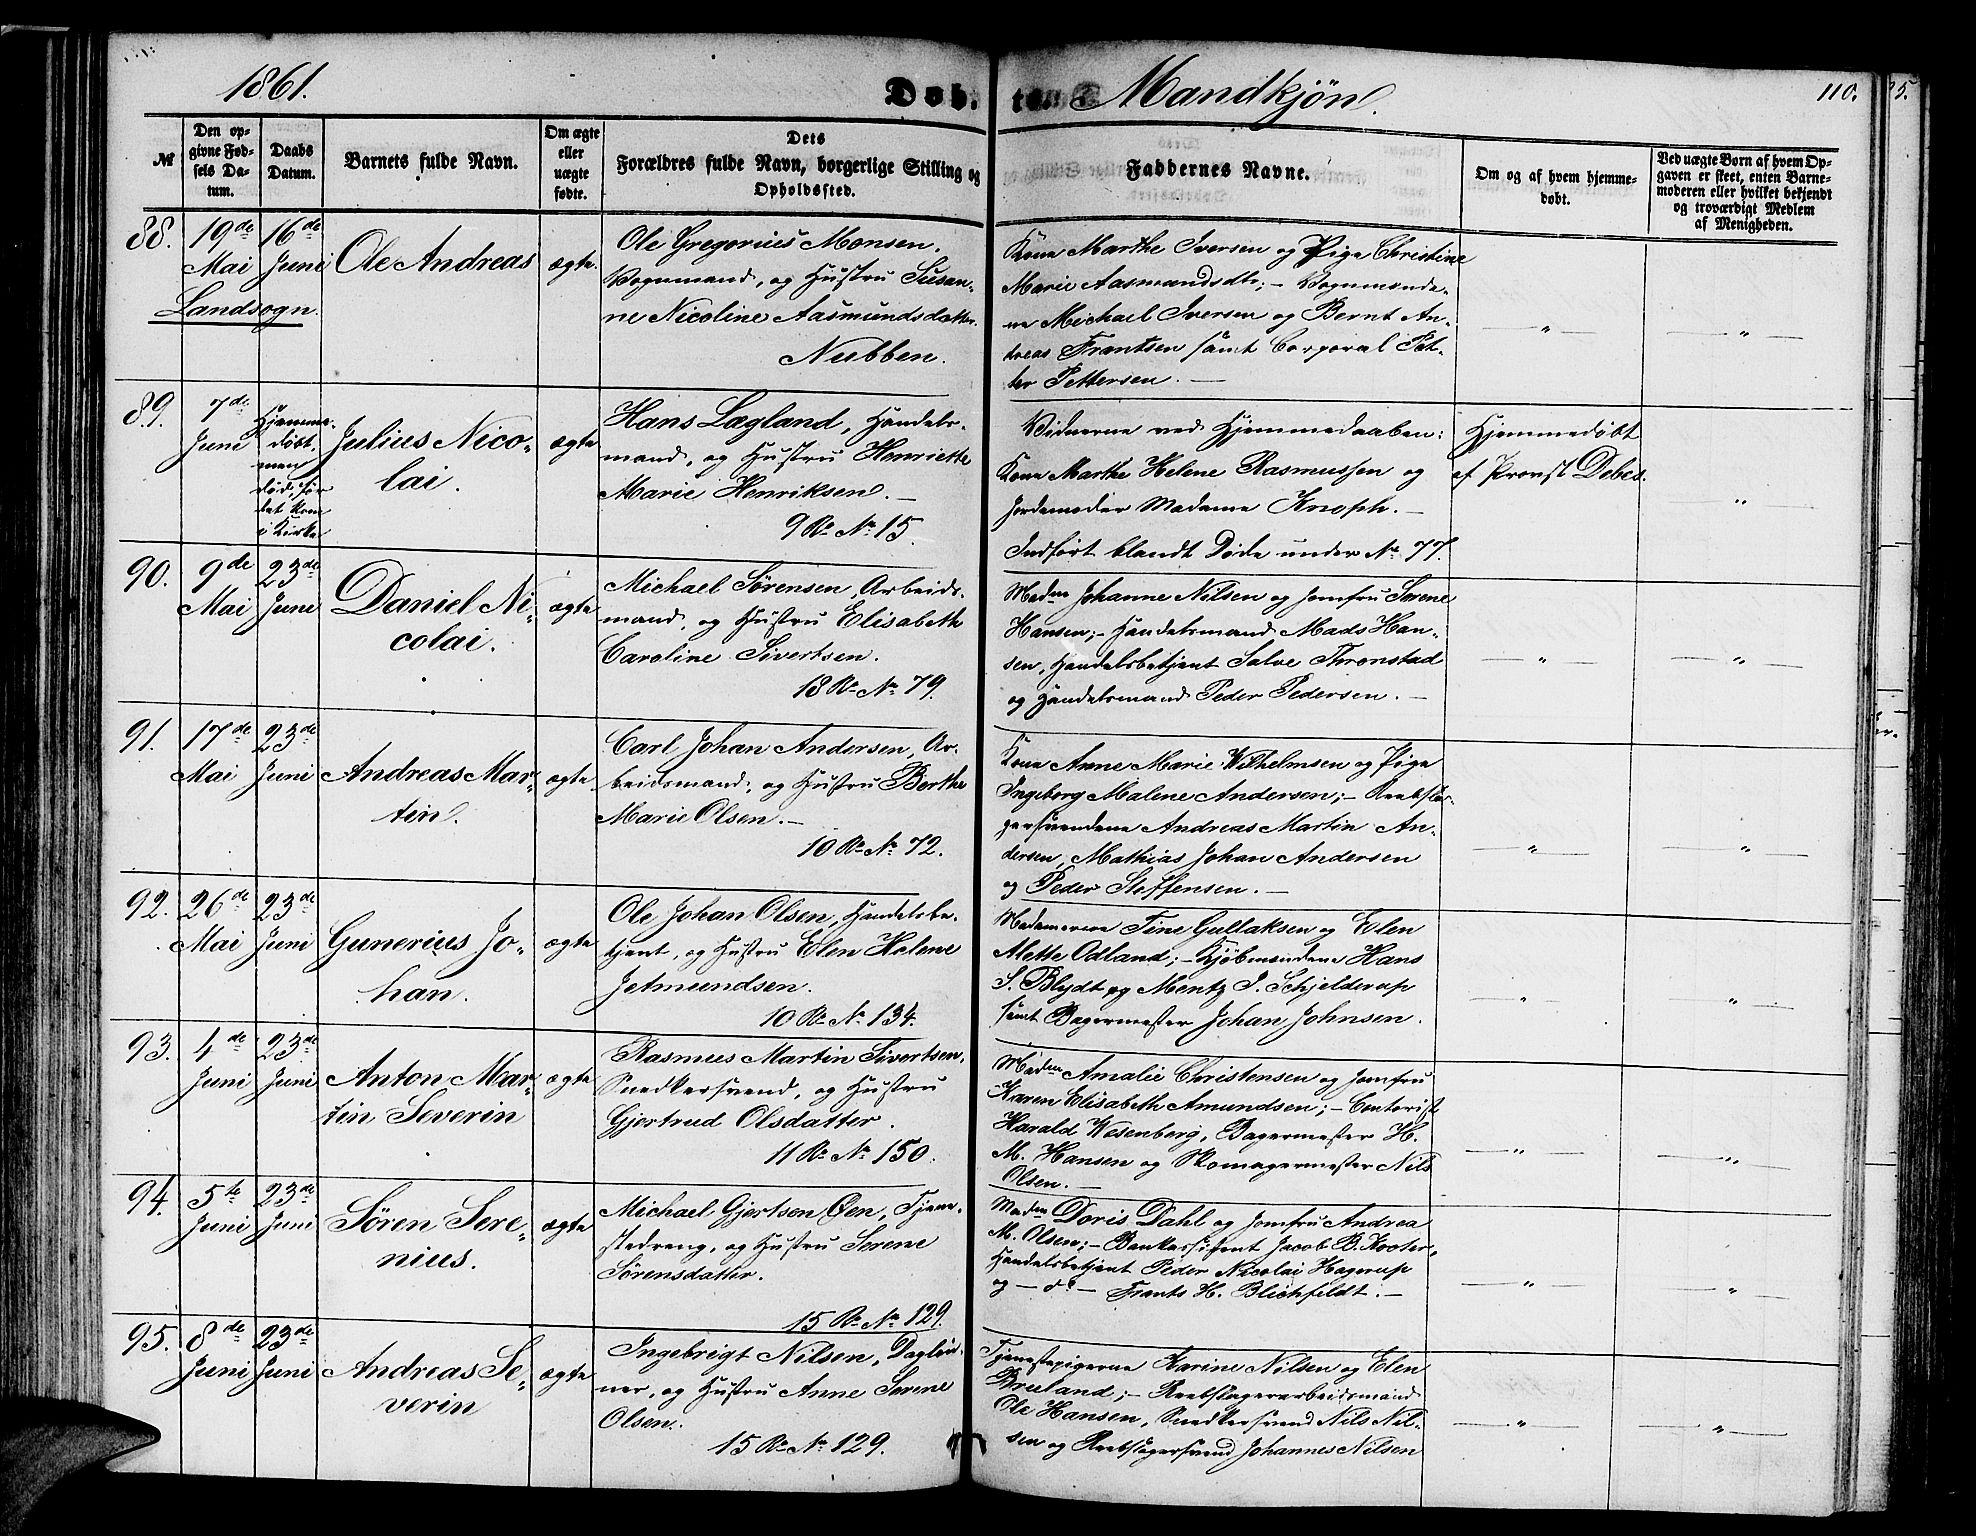 1861.
Døb- te. Mandkjøn.
110.
№
Den op-
givne Fød-
sels Da-
tum.
Daabs
Datum.
Barnets fulde Navn.
Om ægte
eller
uægte
fødte.
Dets
Forældres fulde Navn, borgerlige Stilling og
Opholdssted.
Faddernes Navne.
Om og af hvem hjemme-
døbt.
Ved uægte Børn af hvem Op-
gaven er skeet, enten Barne-
moderen eller hvilket bekjendt
og troværdigt Medlem
af Menigheden.
88.
19de
Mai
Landsogn.
16de
Juni
Ole Andreas
ægte.
Ole Gregorius Monsen,
Vognmand, og Hustru Susan-
ne Nicoline Aasmundsdatter.
Nubben.
Kone Marthe Iversen og Pige Christine
Marie Aasmundsdtr; – Vognmænde-
ne Michael Iversen og Bernt An-
dreas Frantsen samt Corporal Pet-
ter Pettersen. —
— " —
— " —
89.
7de
Juni
Hjemme-
døbt,
men
død, før
det kom
i Kirke
Julius Nico-
lai.
ægte
Hans Lægland, Handels-
mand, og Hustru Henriette
Marie Henriksen. —
9 Rde № 15.
Vidnerne ved Hjemmedaaben:
Kone Marthe Helene Rasmussen og
Jordemoder Madame Knoph. —
Indført blandt Døde under № 77.
Hjemmedøbt
af Provst Debes.
— " —
90.
9de
Mai
23de
Juni
Daniel Ni-
colai.
ægte
Michael Sørensen, Arbeids-
mand, og Hustru Elisabeth
Caroline Sivertsen.
13 Rde № 79.
Madme Johanne Nilsen og Jomfru Serene
Hansen; – Handelsmand Mads Han-
sen, Handelsbetjent Salve Thronstad
og Handelsmand Peder Pedersen. —
— " —
— " —
91.
17de
Mai
23de
Juni
Andreas Mar-
tin.
ægte
Carl Johan Andersen, Ar-
beidsmand, og Hustru Berthe
Marie Olsen. —
10 Rde № 72.
Kone Anne Marie Wilhelmsen og Pige
Ingeborg Malene Andersen; – Rebsla-
gersvendene Andreas Martin An-
dersen, Mathias Johan Andersen
og Peder Steffensen. —
— " —
— " —
92.
26de
Mai
23de
Juni
Gunerius Jo-
han.
ægte
Ole Johan Olsen, Handelsbe-
tjent, og Hustru Elen Helene
Jetmundsen.
10 Rde № 134.
Madamerne Tine Gullaksen og Elen
Alette Odland; – Kjøbmændene Hans
S. Blydt og Mentz I. Schjelderup
samt Bagermester Johan Johnsen.
— " —
— " —
93.
4de
Juni
23de
Juni
Anton Mar-
tin Severin
ægte
Rasmus Martin Sivertsen,
Snedkersvend, og Hustru
Gjertrud Olsdatter.
11 Rde № 150.
Madme Amalie Christensen og Jomfru
Karen Elisabeth Amundsen; – Contorist
Harald Wesenberg, Bagermester H.
M. Hansen og Skomagermester Nils
Olsen. —
— " —
— " —
94.
5te
Juni
23de
Juni
Søren Sere-
nius.
ægte
Michael Gjertsen Øen, Tjene-
stedreng, og Hustru Serene
Sørensdatter.
15 Rde № 129.
Madme Doris Dahl og Jomfru Andrea
M. Olsen; – Bankassistent Jacob B. Kooter,
Handelsbetjent Peder Nicolai Hagerup
og — do — Frants H. Blichfeldt. —
— " —
— " —
95.
8de
Juni
23de
Juni
Andreas Se-
verin
ægte
Ingebrigt Nilsen, Dagløn-
ner, og Hustru Anne Serene
Olsen.
15 Rde № 129.
Tjenestepigerne Karine Nilsen og Elen
Brueland; – Rebslagerarbeidsmand
Ole Hansen, Snedkersvend Nils Nil-
sen og Rebslagersvend Johannes Nilsen
— " —
— " —